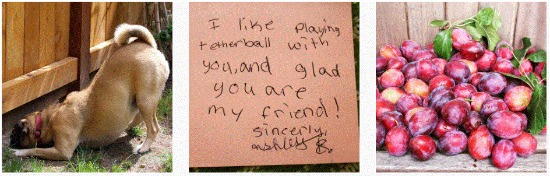 I like playing
tetherball with
you, and glad
you are
my friend!
sincerly,
ashley B.